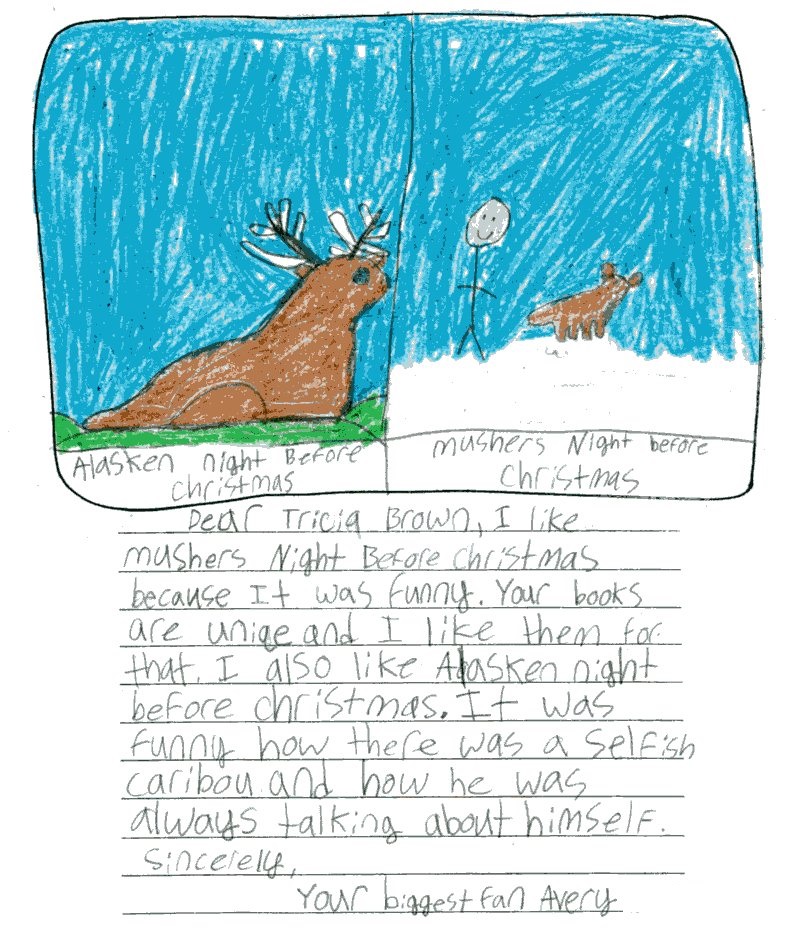 Alasken night Before
christmas
mushers Night before
christmas
Dear Tricia Brown, I like
mushers Night Before christmas
because It was funny. Your books
are uniqe and I like them for
that. I also like Alasken night
before christmas. It was
funny how there was a selfish
caribou and how he was
always talking about himself.
Sincerely,
Your biggest fan Avery